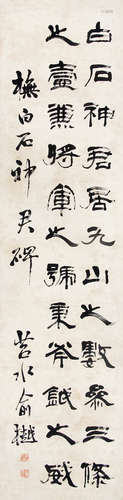 白石神君居九山之數參三條
之壹兼將軍之號秉斧鉞之威
橅白石神君碑
苕水俞樾